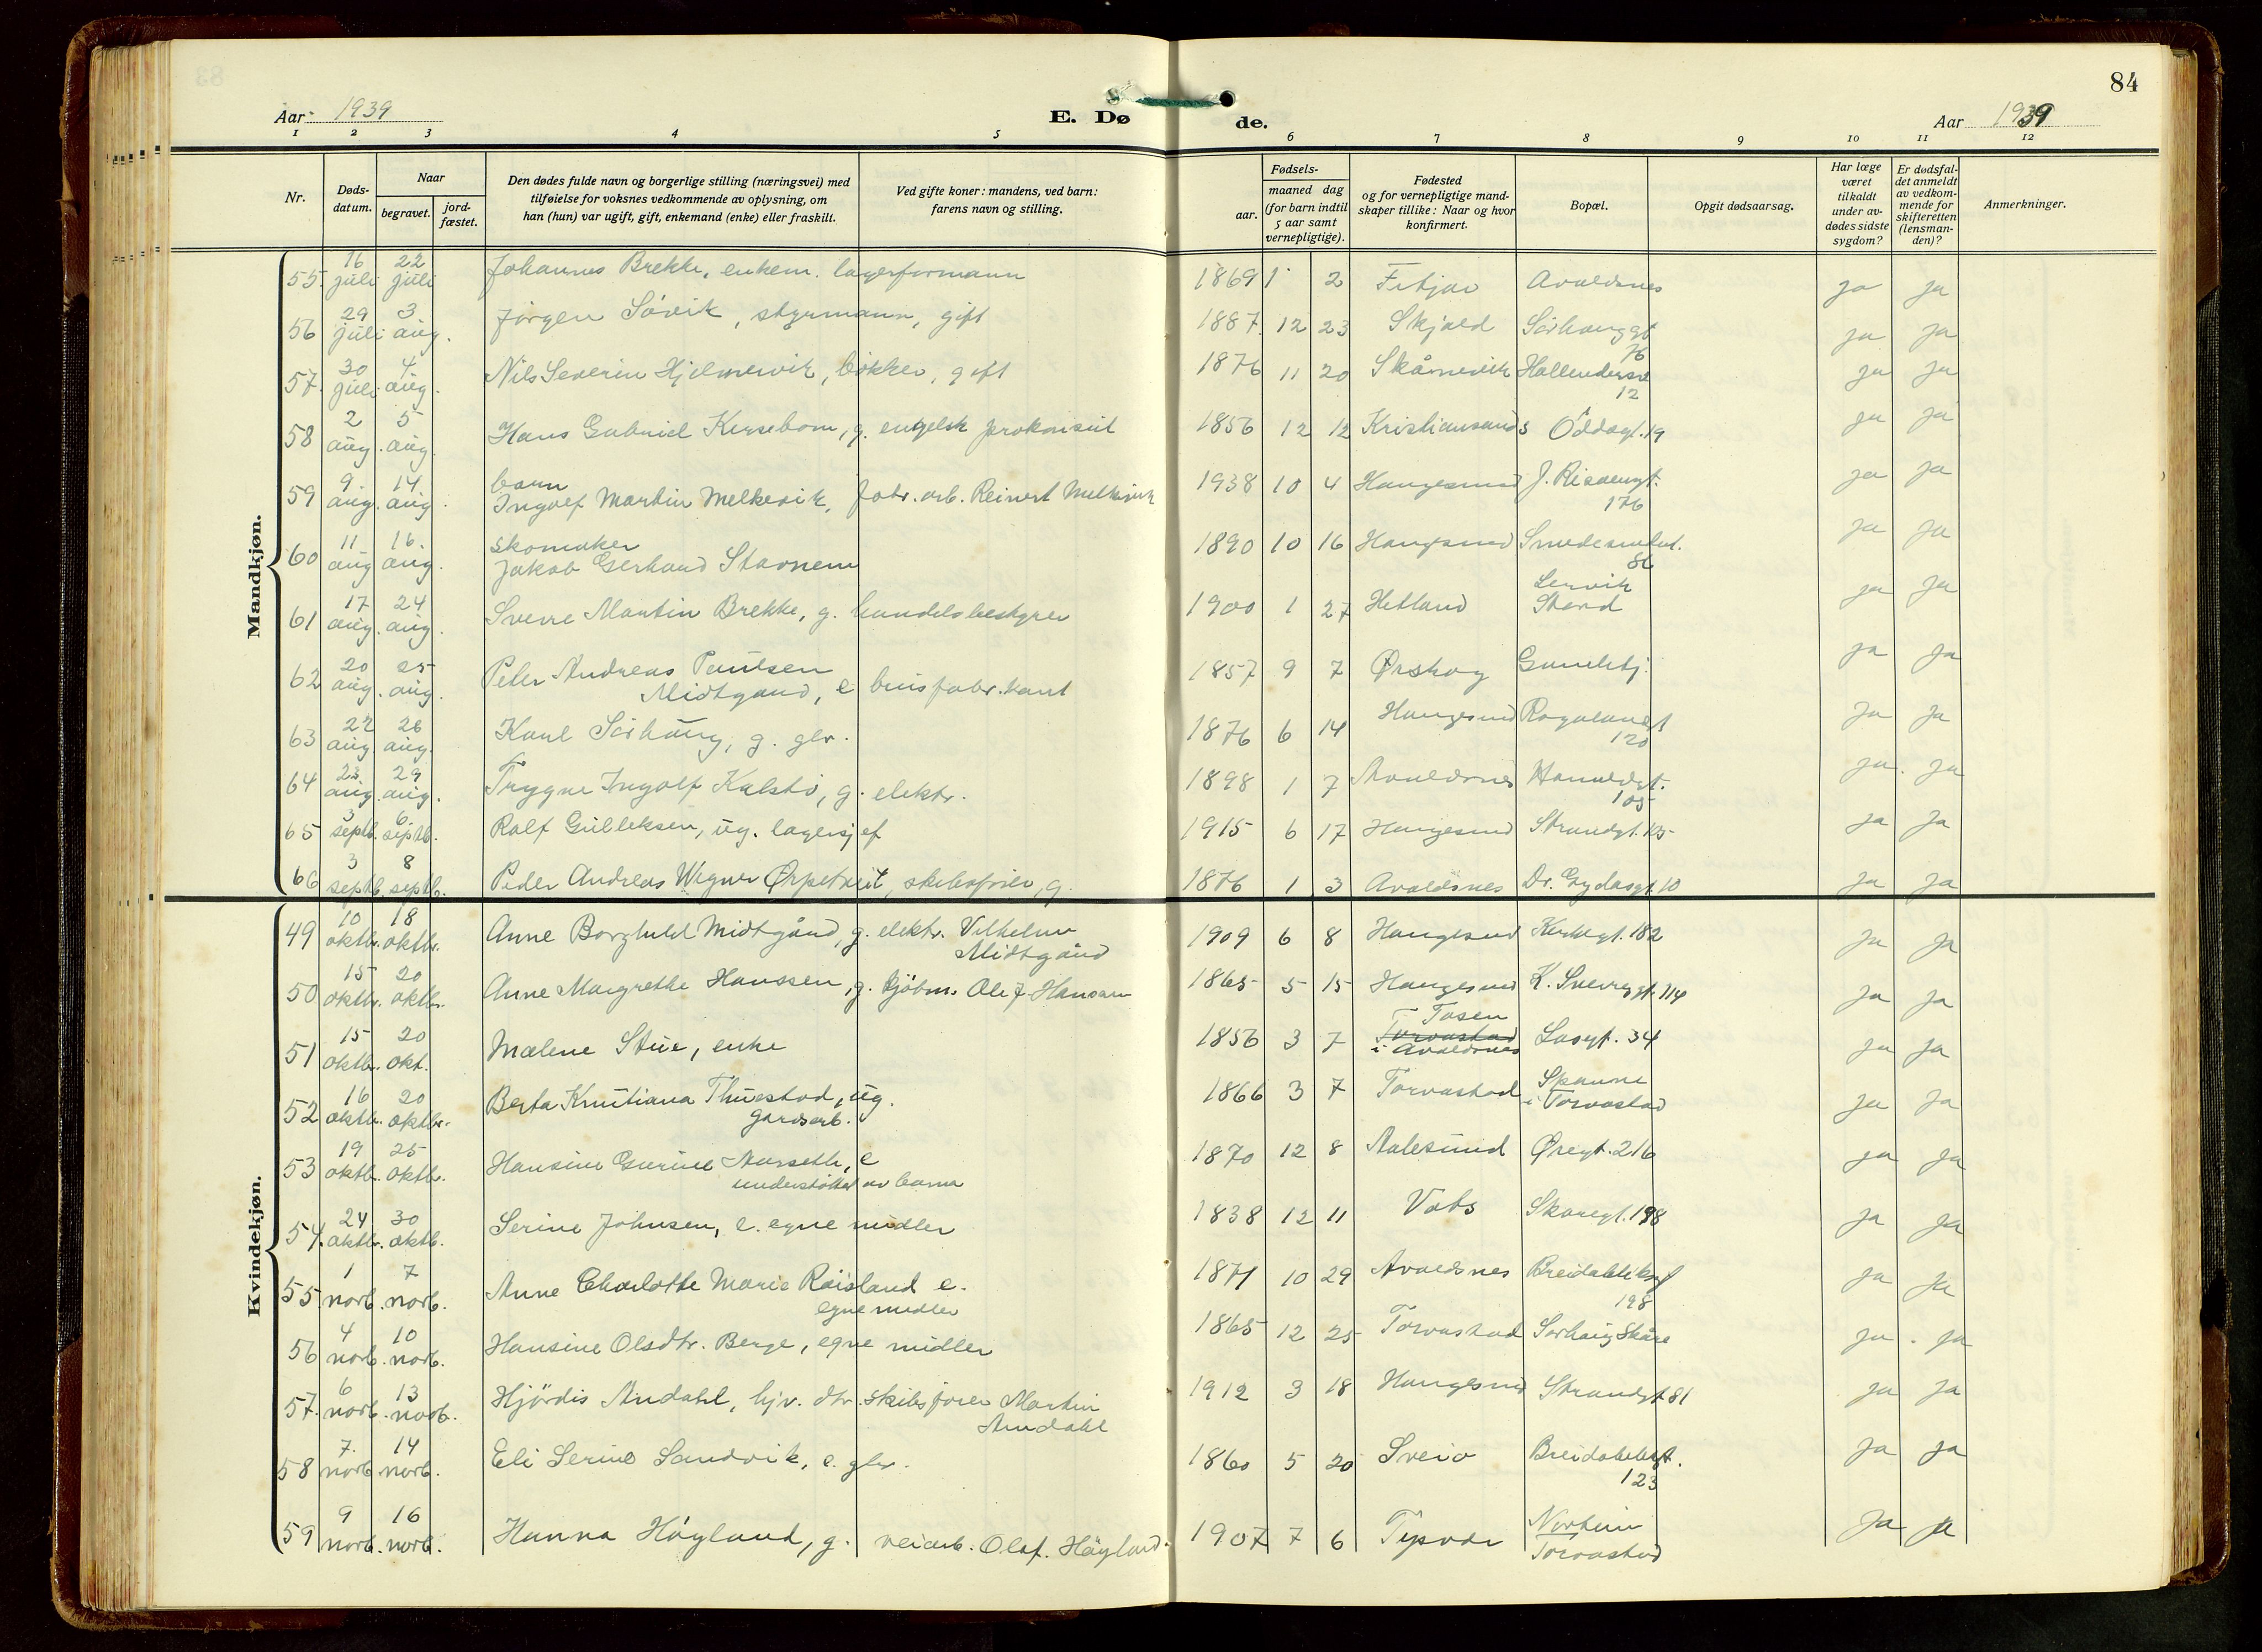 84
Aar 1939
E. Døde.
Aar 1939
1 2 3 4 5 6 7 8 9 10 11 12
Nr.
Døds-
datum.
Naar
begravet.
jord-
fæstet.
Den dødes fulde navn og borgerlige stilling (næringsvei) med
tilføielse for voksnes vedkommende av oplysning, om
han (hun) var ugift, gift, enkemand (enke) eller fraskilt.
Ved gifte koner: mandens, ved barn:
farens navn og stilling.
Fødsels-
aar.
maaned dag
(for barn indtil
5 aar samt
vernepligtige).
Fødested
og for vernepligtige mand-
skaper tillike: Naar og hvor
konfirmert.
Bopæl.
Opgit dødsaarsag.
Har læge
været
tilkaldt
under av-
dødes sidste
sygdom?
Er dødsfal-
det anmeldt
av vedkom-
mende for
skifteretten
(lensman-
den)?
Anmerkninger.
Mandkjøn.
55. 16 juli 22 juli Johannes Brekke, enkem. lagerformann 1869 1 2 Fitjar Avaldsnes ja ja
56 29 juli 3 aug. Jörgen Sövik, styrmann, gift 1887. 12 23 Skjold Sörhauggt 76 ja ja
57. 30 juli 4 aug. Nils Severin Hjelmervik, bökker, gift 1876 11 20 Skånevik 12 ja ja
58 2 aug. 5 aug. Hans Gabriel Kersebom, g. engelsk prokonsul 1856 12 12 Kristiansand S Oddagt. 19 ja ja
59 9. aug. 14. aug. barn
Ingolf Martin Melkevik, fabr. arb. Reinert Melkevik 1938 10 4 Haugesund J. Risøengt. 176 ja ja
60 11 aug 16. aug. skomaker
Jakob Gerhard Stavnem 1890 10 16 Haugesund 86 ja ja
61 17 aug. 24 aug. Sverre Martin Brekke, g. handelsbestyrer 1900 1 27 Hetland Lervik Stord ja ja
62 20 aug. 25 aug. Peter Andreas Paulsen
Midtgaard, e brusfabrikant 1857 9 7 Ørskog ja ja
63 22 aug 26 aug. Karl Sörhaug, g. glr. 1876 6 14 Haugesund Rogalandgt 120 ja ja
64 23. aug. 29 aug. Trygve Ingolf Kalstö, g. elektr. 1898 1 7 Avaldsnes Haraldgt. 105 ja ja
65 3 septb. 6. septb. Ralf Gulleksen, ug. lagersjef 1915 6 17 Haugesund Strandgt. ja ja
66 3 septb. 8 septb. Peder Andreas Wegner Ørpetveit, skibsförer, g. 1876 1 3 Avaldsnes Dr. Gydasgt. 10 ja ja
Kvindekjøn.
49 10 oktbr. 18 oktbr. Anne Borghild Midtgård, g. elektr. Vilhelm
Midtgård 1909 6 8 Haugesund Kirkegt. 182 ja ja
50 15 oktbr. 20 oktbr. Anne Margrethe Hanssen, g. kjöbm. Ole J. Hansen 1865 5 15 Haugesund K. Sverregt. 114 ja ja
51 15 oktbr. 20 okt. Malene Stue, enke 1856 3 7 Tosen Torvastad i Avaldsnes Lasgt. 34 ja ja
52 16 oktbr. 20 oktbr. Berta Knutiana Thuestad, ug.
gardsarb. 1866 3 7 Torvastad Spanne i Torvastad ja ja
53 19 oktbr. 25 oktbr. Hansine Gurine Aarseth, e
understöttet av barna 1870 12 8 Aalesund Øregt. 216 ja ja
54. 24 oktbr. 30 oktb. Serine Johnsen, e. egne midler 1838 12 11 Vats Skaregt. 198 ja ja
55. 1 novb. 7 novb. Anne Charlotte Marie Röisland e.
egne midler 1871 10 29 Avaldsnes Breidablikgt 198 ja ja
56 4 novb. 10 novb. Hansine Olsdtr. Berge, egne midler 1865 12 25 Torvastad Sørhaug Skåre ja ja
57. 6 novb. 13 novb. Hjördis Amdahl, hjv. dtr. skibsförer Martin
Amdahl 1912 3 18 Haugesund Strandgt 81 ja ja
58 7. novb. 14 novb. Eli Serine Sandvik, e. glr. 1860 5 20 Sveio Breidablikgt. 123 ja ja
59 9 novb. 16 novb. Hanna Höyland, g. veiarb. Olaf. Höyland. 1907 7 6 Tysvær Norheim Torvastad ja ja